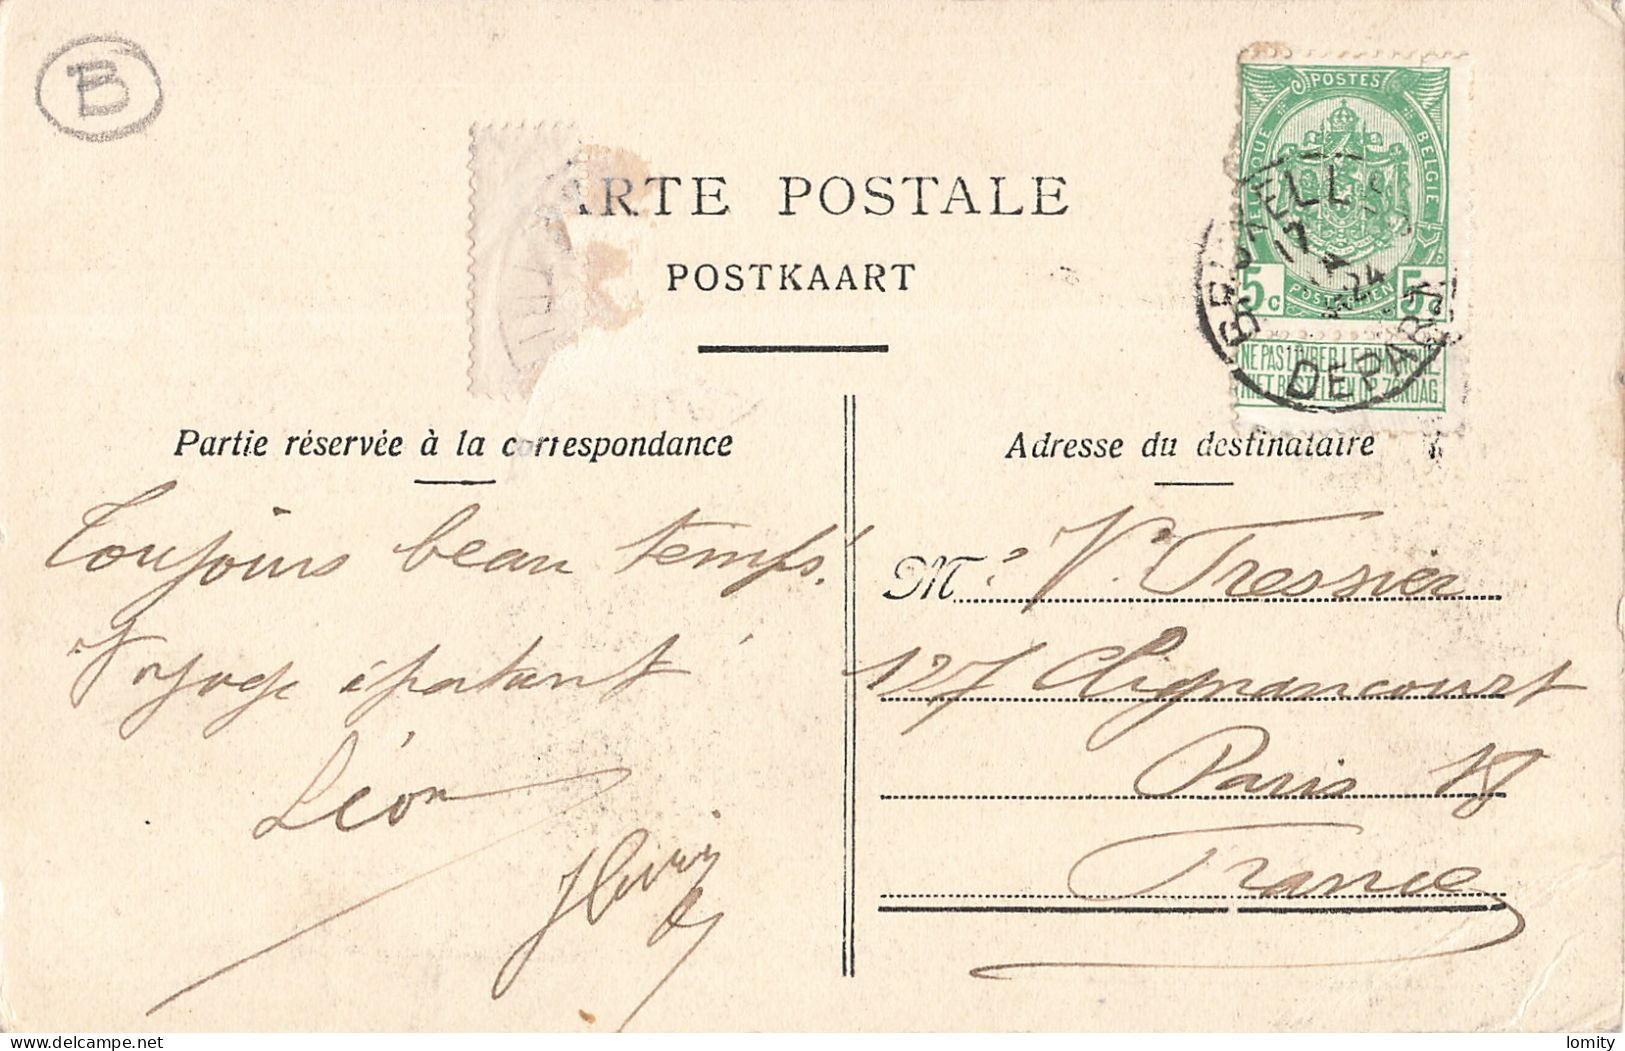 B
CARTE POSTALE
POSTKAART
POSTES
BELGIQUE BELGIE
5c 5c
POSTERIJEN
NE PAS LIVRER LE DIMANCHE
NIET BESTELLEN OP ZONDAG
BRUXELLES
17
24
DEPART
Partie réservée à la correspondance
Adresse du destinataire
Toujours beau temps!
Voyage épatant
Léon
Henri
Mr V. Tressier
127 Clignancourt
Paris 18
France
delcampe.net
lomity